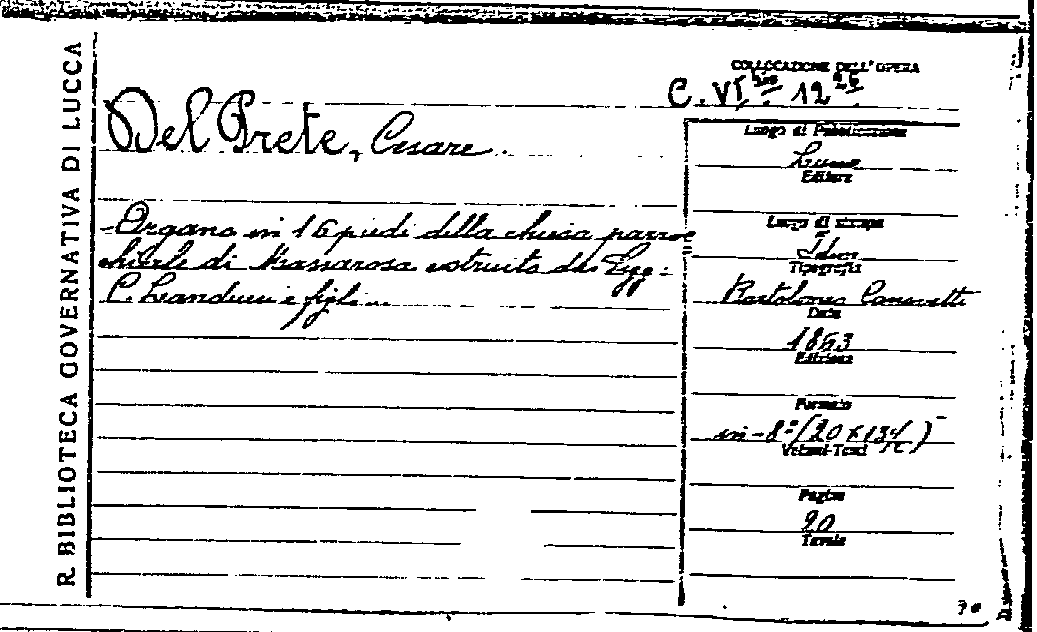 R. BIBLIOTECA GOVERNATIVA DI LUCCA
COLLOCAZIONE DELL'OPERA
C. VI bis 12
Del Prete, Cesare.
Organo in 16 piedi della chiesa parro
chiale di Massarosa costruito da
e figli
Luogo di Pubblicazione
Lucca
Editore
Luogo di stampa
Idem
Tipografia
Bartolomeo Canovetti
Data
1863
Edizione
Formato
in-8° (20 x 13 1/2)
Volumi-Tomi
Pagine
20
Tavole